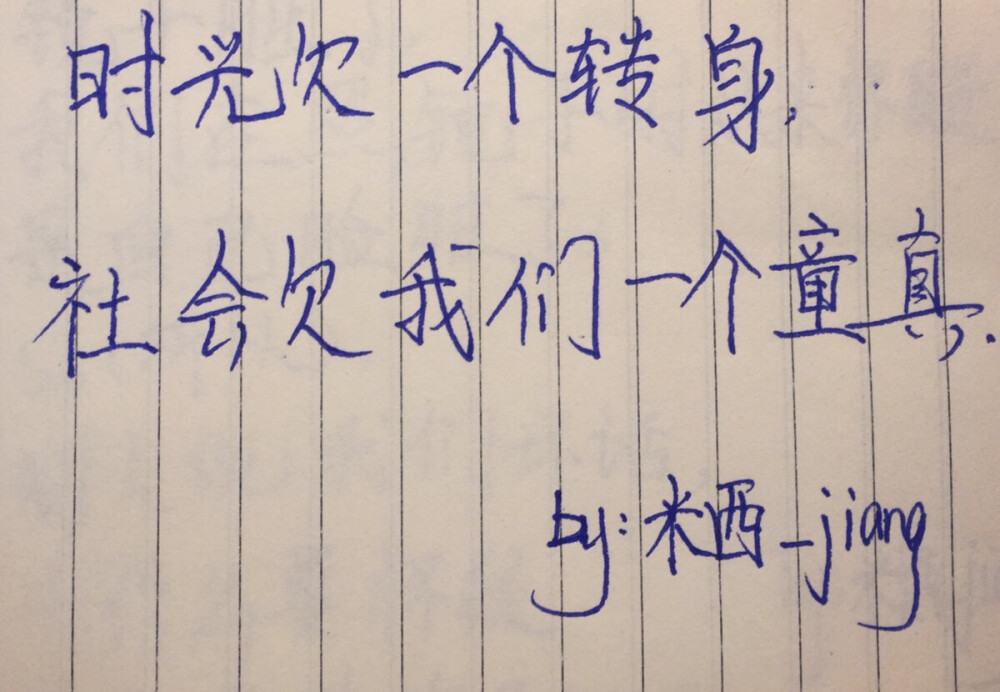 时光欠一个转身,
社会欠我们一个童真.
by:米西_jiang